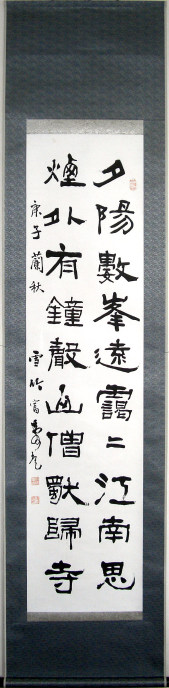 夕陽數峯遠靄〻江南思
煙外有鐘聲山僧獨歸寺
庚子蘭秋 雪竹富